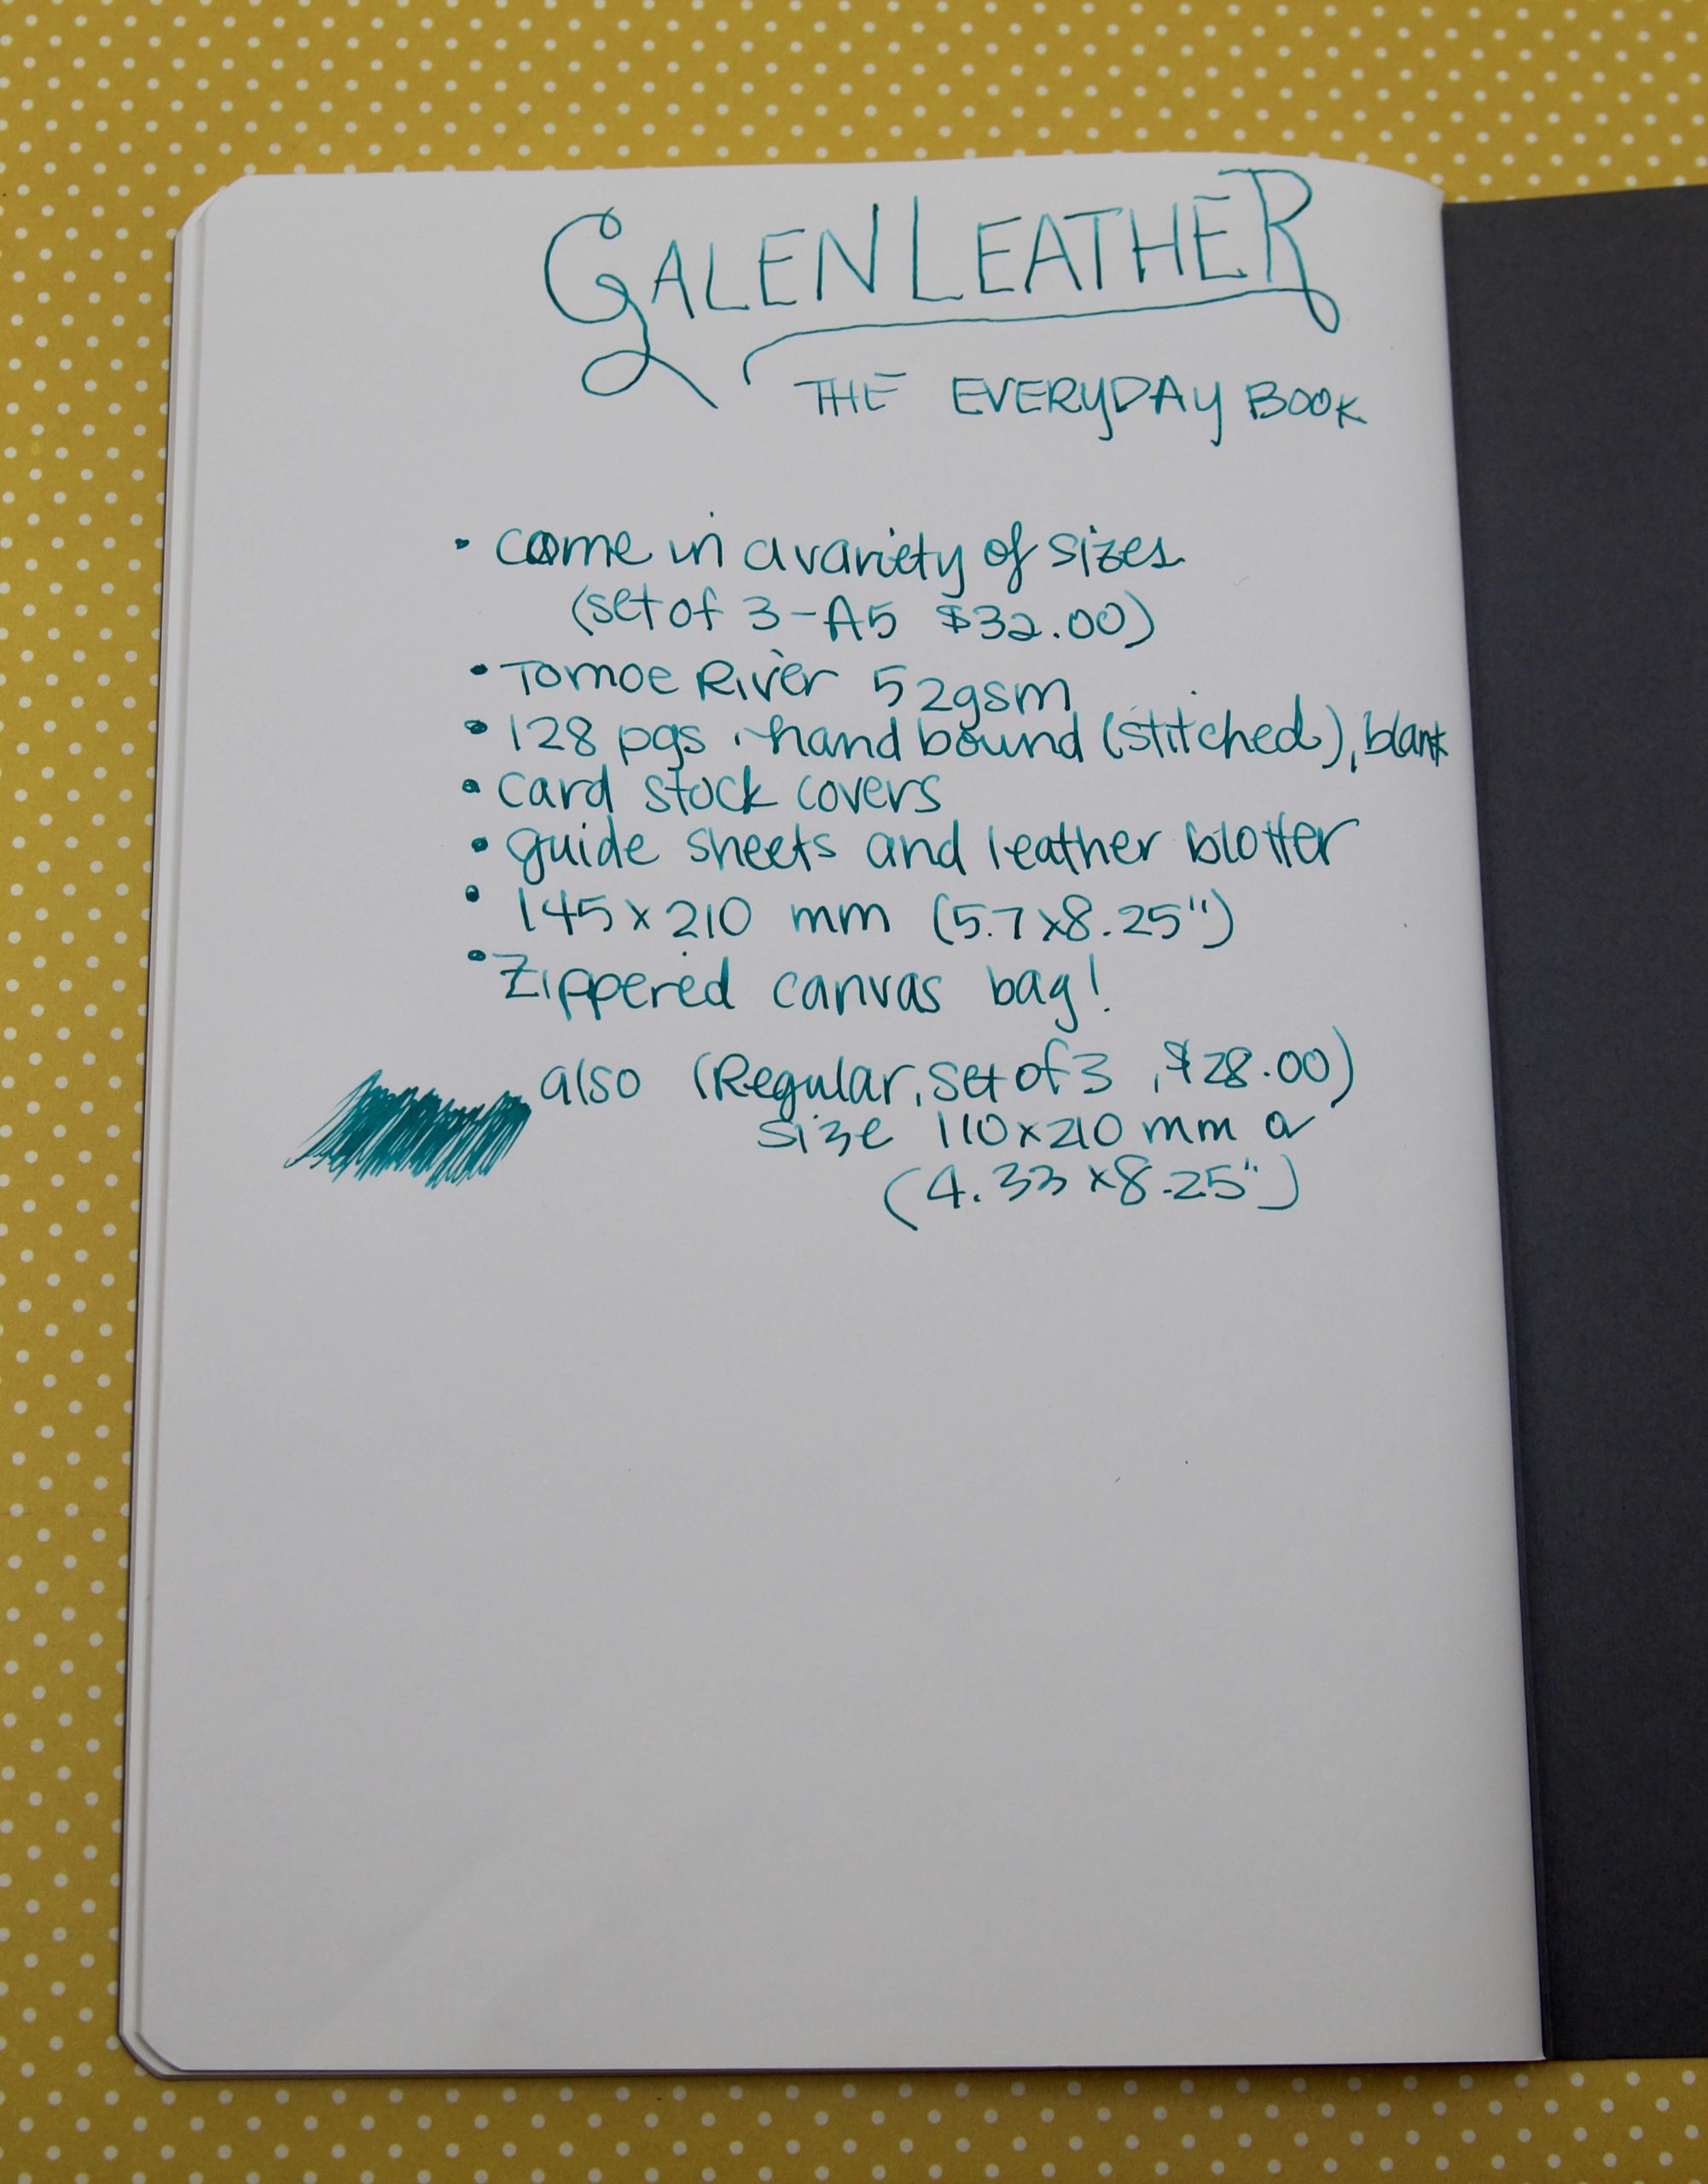 GALEN LEATHER
THE EVERYDAY BOOK
• come in a variety of sizes
(set of 3 - A5 $32.00)
• Tomoe River 52gsm
• 128 pgs, hand bound (stitched), blank
• card stock covers
• guide sheets and leather blotter
• 145 x 210 mm (5.7 x 8.25")
• Zippered canvas bag!
also (Regular, set of 3, $28.00)
size 110 x 210 mm or
(4.33 x 8.25")